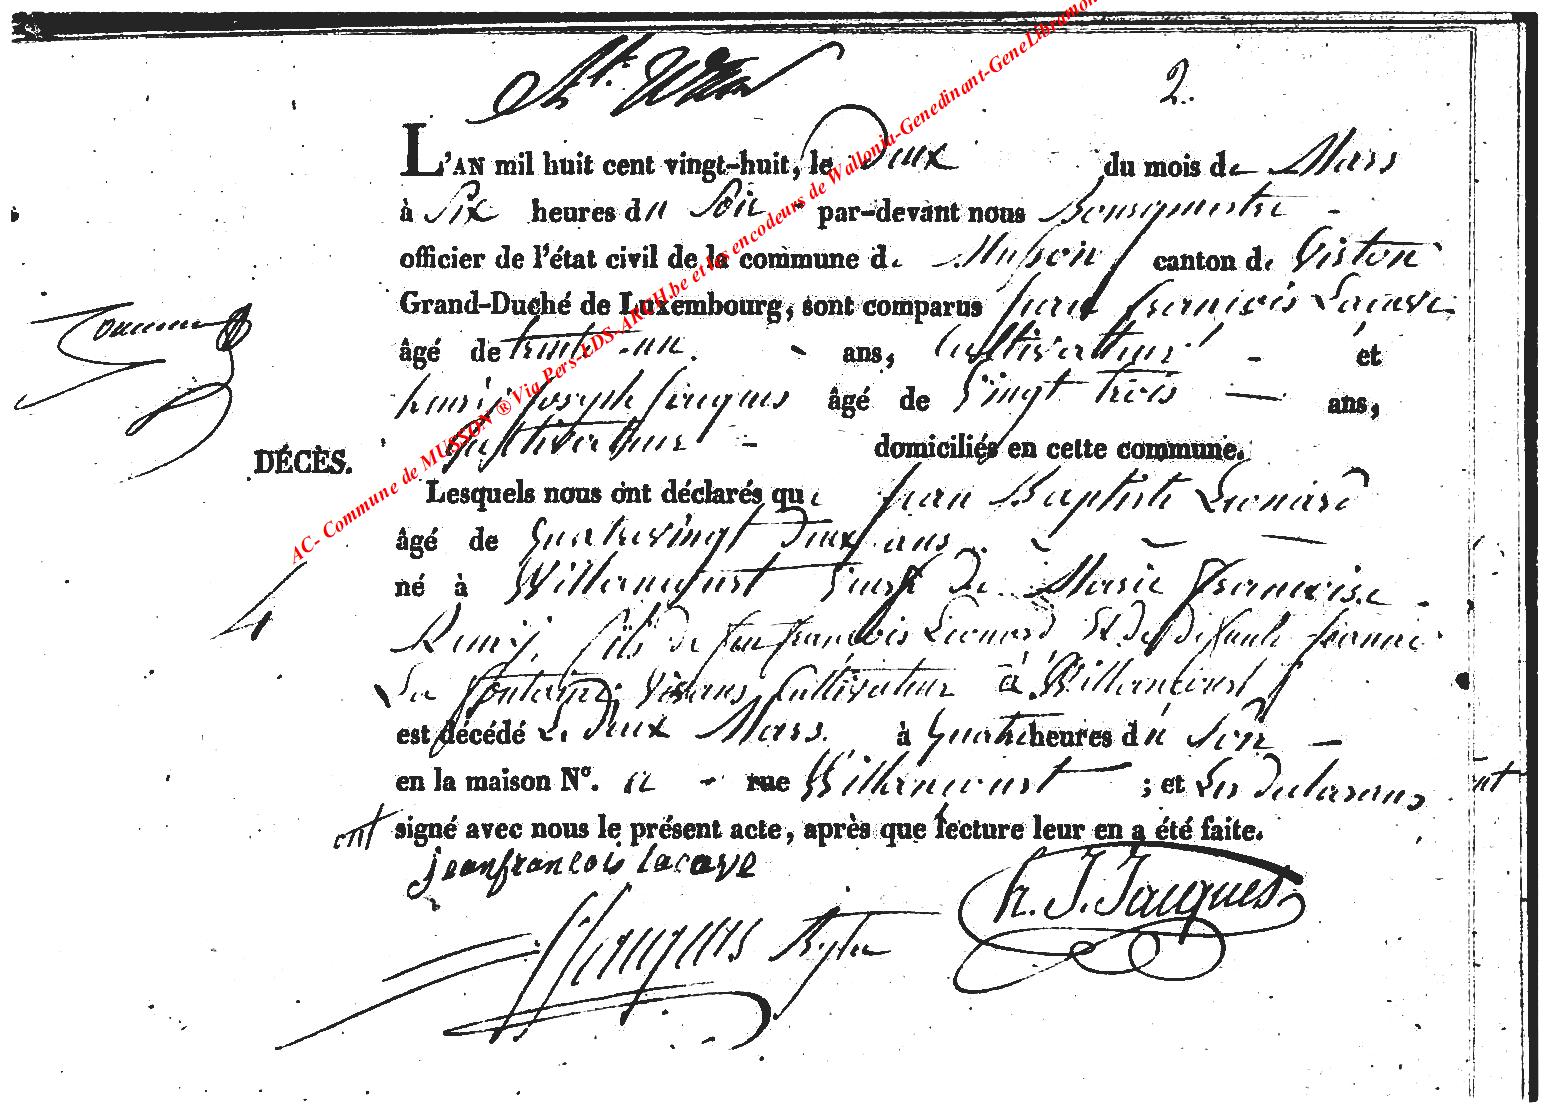 2.
L'AN mil huit cent vingt-huit, le Deux du mois de Mars
à Six heures du Soir par-devant nous Bourgmestre
officier de l'état civil de la commune de Musson canton de Virton
Grand-Duché de Luxembourg, sont comparus Jean françois Lacave
âgé de trente un ans, Cultivateur et
henri Joseph Jacques âgé de Vingt trois ans,
Cultivateur domiciliés en cette commune.
DÉCÈS.
Lesquels nous ont déclarés que Jean Baptiste Leonard
âgé de Quatrevingt Deux ans
né à Willancourt veuf de Marie françoise
4
Remy, fils de feu françois Leonard Et de Defunte Jeanne
La fontaine vivans Cultivateur à Willancourt
est décédé Le Deux Mars à Quatre heures du Soir
en la maison N°. a rue Willancourt ; et Les Declarans
ont signé avec nous le présent acte, après que lecture leur en a été faite.
jeanfrancois lacave
h. J. Jacques
AC- Commune de MUSSON ® Via Pers-LDS-ARCH.be et les encodeurs de Wallonia-Genedinant-GeneLibramon